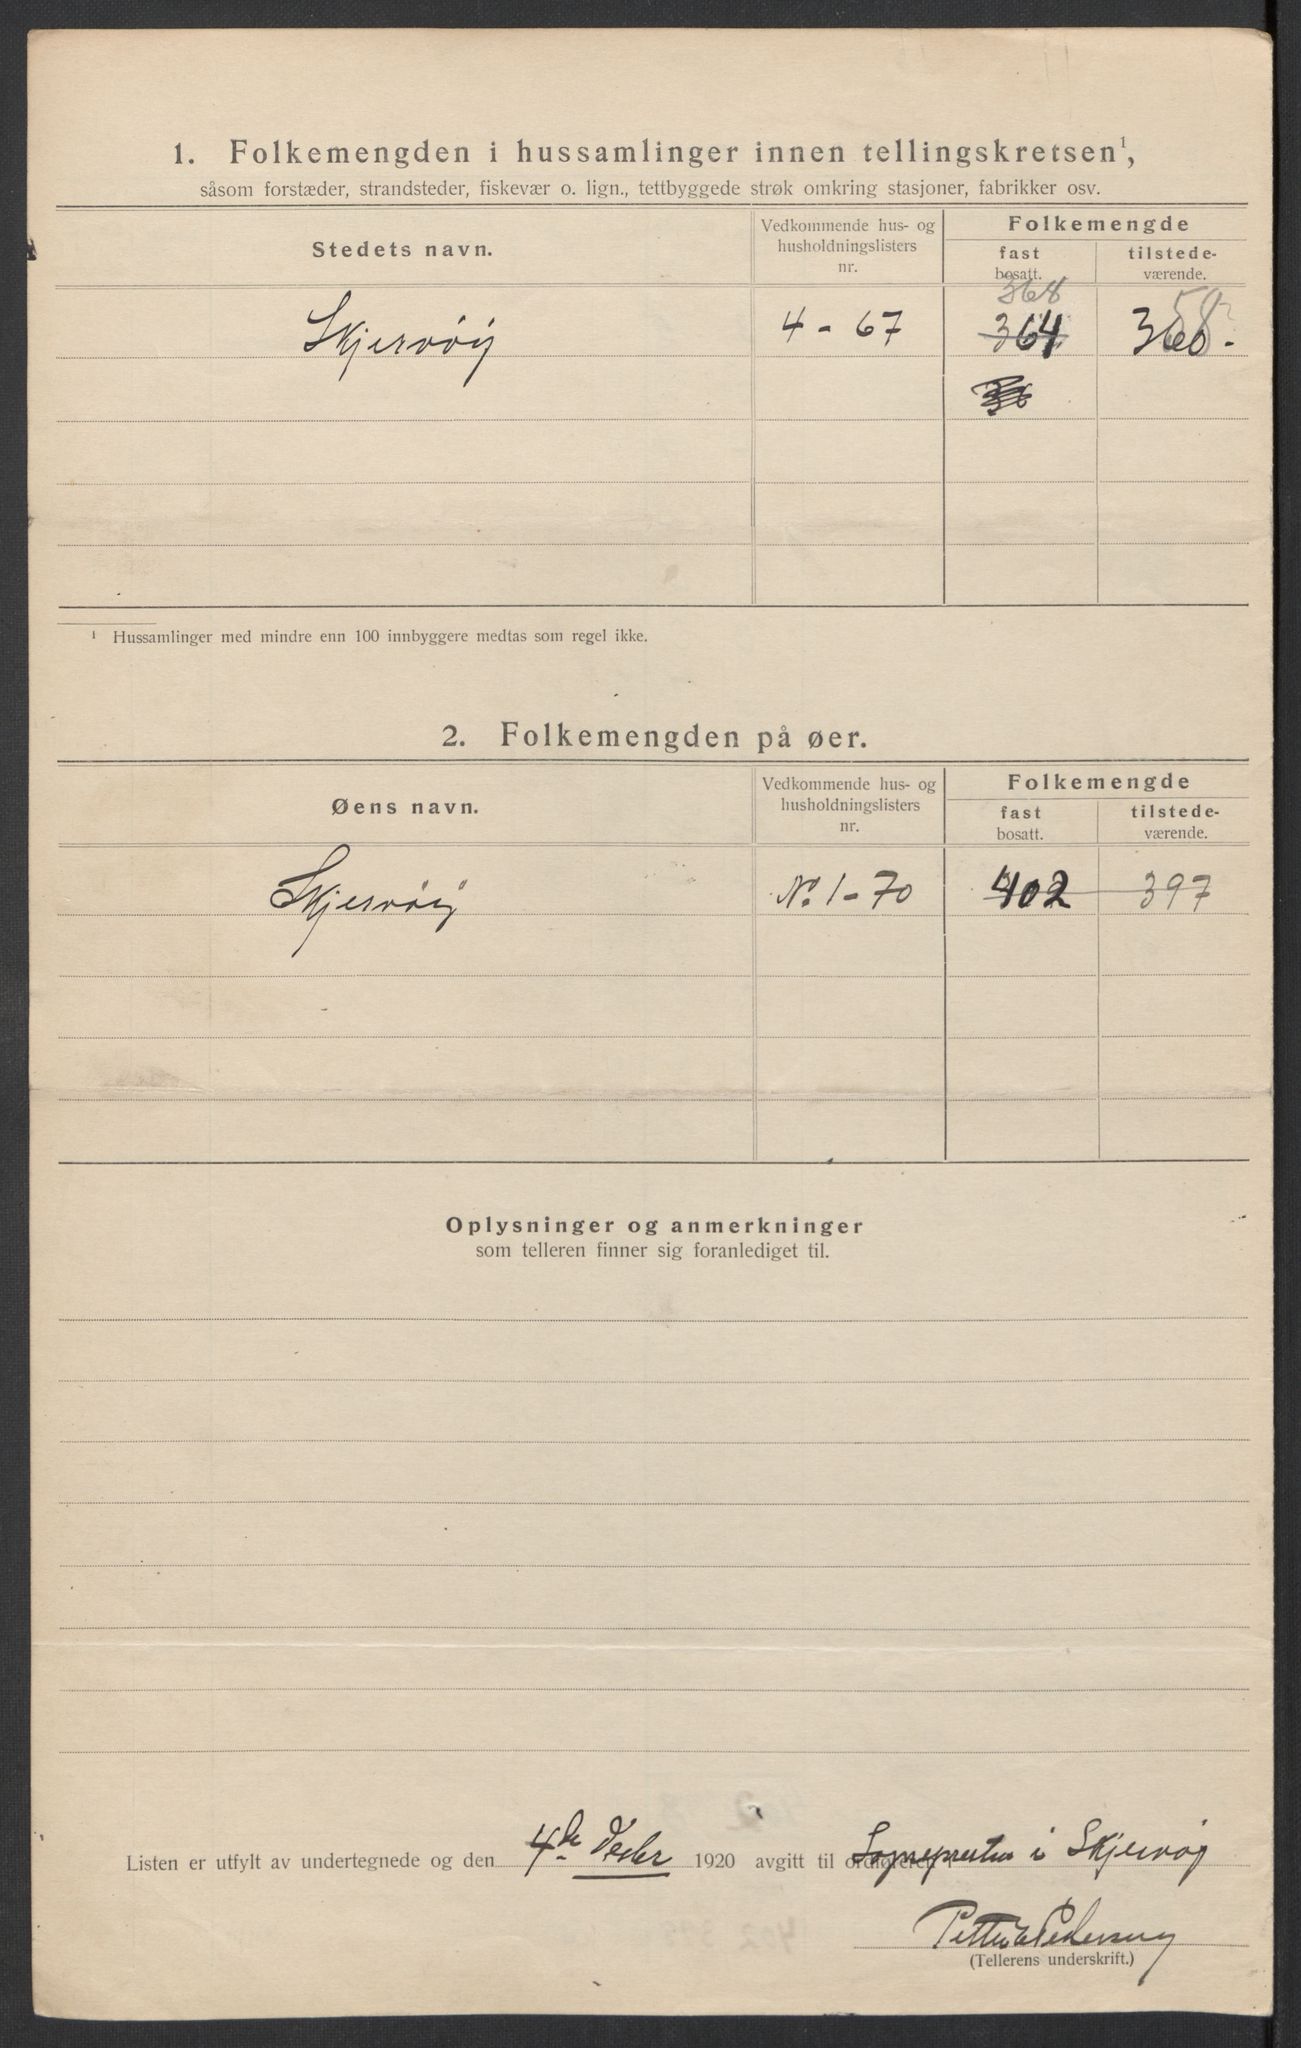 1. Folkemengden i hussamlinger innen tellingskretsen¹,
såsom forstæder, strandsteder, fiskevær o. lign., tettbyggede strøk omkring stasjoner, fabrikker osv.
Stedets navn.
Vedkommende hus- og husholdningslisters nr.
Folkemengde
fast bosatt.
tilstede-
værende.
368
Skjervöy 4 - 67 364 360.
58
¹ Hussamlinger med mindre enn 100 innbyggere medtas som regel ikke.
2. Folkemengden på øer.
Øens navn.
Vedkommende hus- og husholdningslisters nr.
Folkemengde
fast bosatt.
tilstede-
værende.
Skjervöy No. 1-70 402 397
Oplysninger og anmerkninger
som telleren finner sig foranlediget til.
Listen er utfylt av undertegnede og den 4de Decbr 1920 avgitt til ordføreren Sognepresten i Skjervøy
Petter Pedersen
(Tellerens underskrift.)